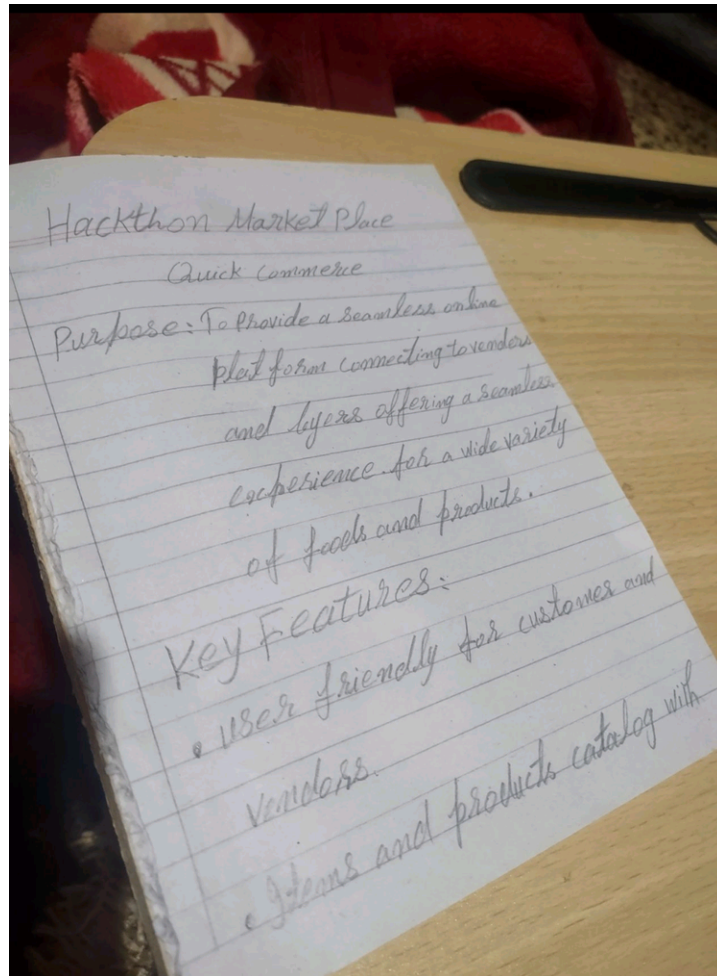 Hackthon Market Place
Quick Commerce
Purpose: To Provide a seamless online
plat form connecting to vendors
and byers offering a seamless
experience for a wide variety
of foods and products.
Key Features:
• user friendly for customer and
vendors.
• Items and products catalog with